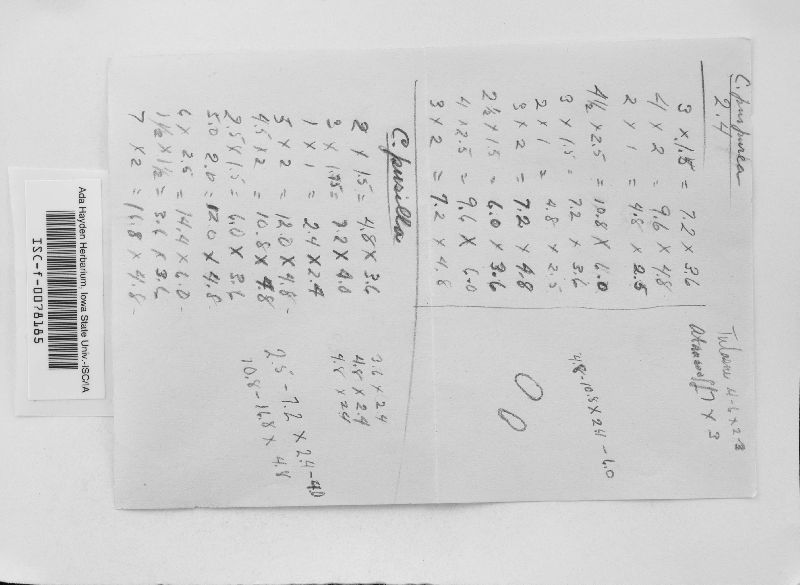 C. purpurea
2.4
3 x 1.5 = 7.2 x 3.6
4 x 2 = 9.6 x 4.8
2 x 1 = 4.8 x 2.5
4½ x 2.5 = 10.8 x 6.0
3 x 1.5 = 7.2 x 3.6
2 x 1 = 4.8 x 2.5
3 x 2 = 7.2 x 4.8
2½ x 1.5 = 6.0 x 3.6
4 x 2.5 = 9.6 x 6.0
3 x 2 = 7.2 x 4.8
Tulasne 4-6 x 2-3
x 3
4.8-10.8 x 2.4-6.0
C. pusilla
2 x 1.5 = 4.8 x 3.6
3 x 1.75 = 7.2 x 4.0
1 x 1 = 2.4 x 2.4
5 x 2 = 12.0 x 4.8-
4.5 x 2 = 10.8 x 4.8
2.5 x 1.5 = 6.0 x 3.6
5.0 2.0 = 12.0 x 4.8-
6 x 2.5 = 14.4 x 6.0-
1½ x 1½ = 3.6 x 3.6
7 x 2 = 16.8 x 4.8-
3.6 x 2.4
4.8 x 2.4
4.8 x 2.4
2.5-7.2 x 2.4-4.0
10.8-16.8 x 4.8
Ada Hayden Herbarium. Iowa State Univ.-ISC/IA
ISC-f-0078185